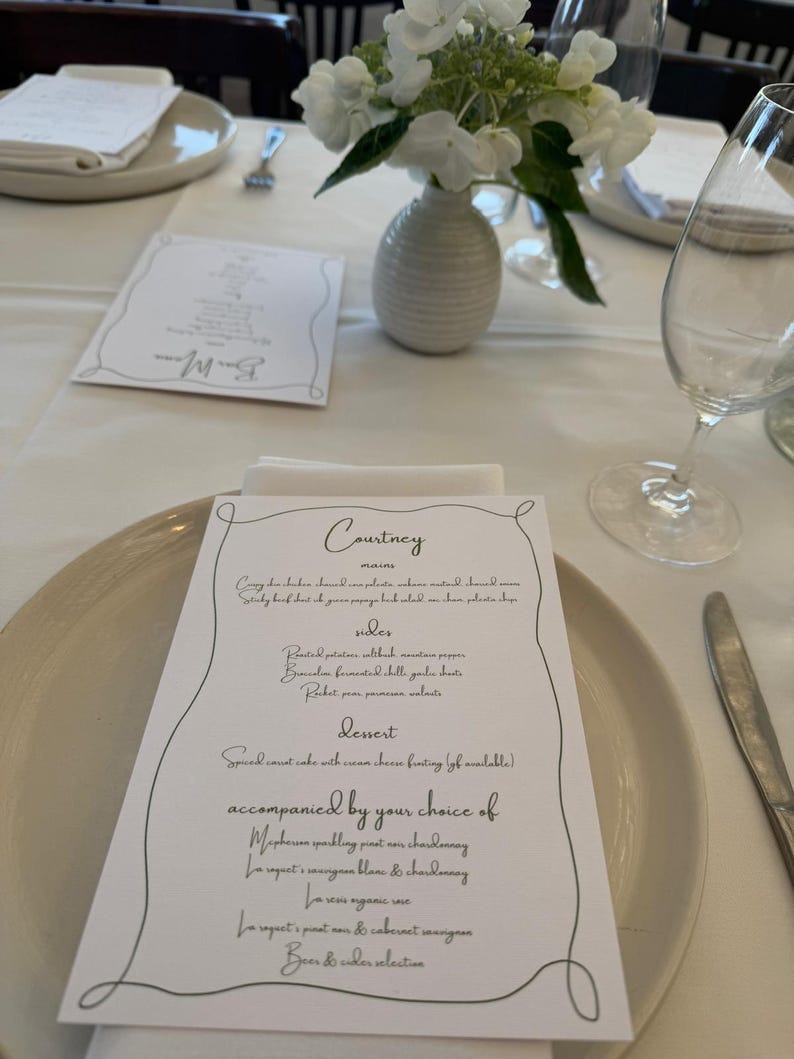 Bar Menu
Courtney
mains
Crispy skin chicken, charred corn polenta, wakame mustard, charred onions
Sticky beef short rib, green papaya herb salad, noc cham, polenta chips
sides
Roasted potatoes, saltbush, mountain pepper
Broccolini, fermented chilli, garlic shoots
Rocket, pear, parmesan, walnuts
dessert
Spiced carrot cake with cream cheese frosting (gf available)
accompanied by your choice of
Mcpherson sparkling pinot noir chardonnay
La roquet's sauvignon blanc & chardonnay
La resis organic rose
La roquet's pinot noir & cabernet sauvignon
Beer & cider selection